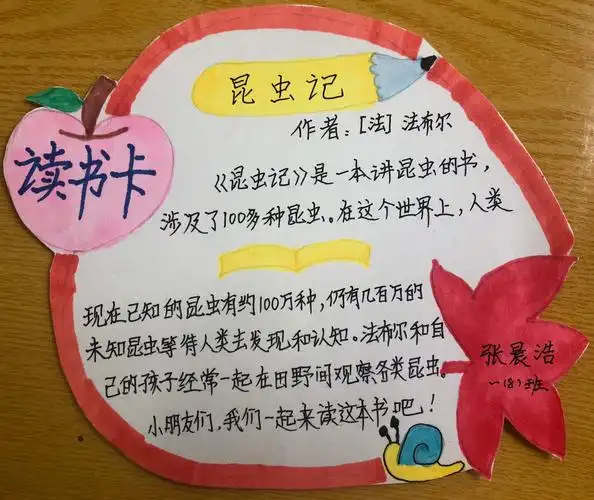 昆虫记
作者：[法]法布尔
读书卡
《昆虫记》是一本讲昆虫的书，
涉及了100多种昆虫。在这个世界上，人类
现在已知的昆虫有约100万种，仍有几百万的
未知昆虫等待人类去发现和认知。法布尔和自
己的孩子经常一起在田野间观察各类昆虫。
小朋友们，我们一起来读这本书吧！
张晨浩
一（8）班